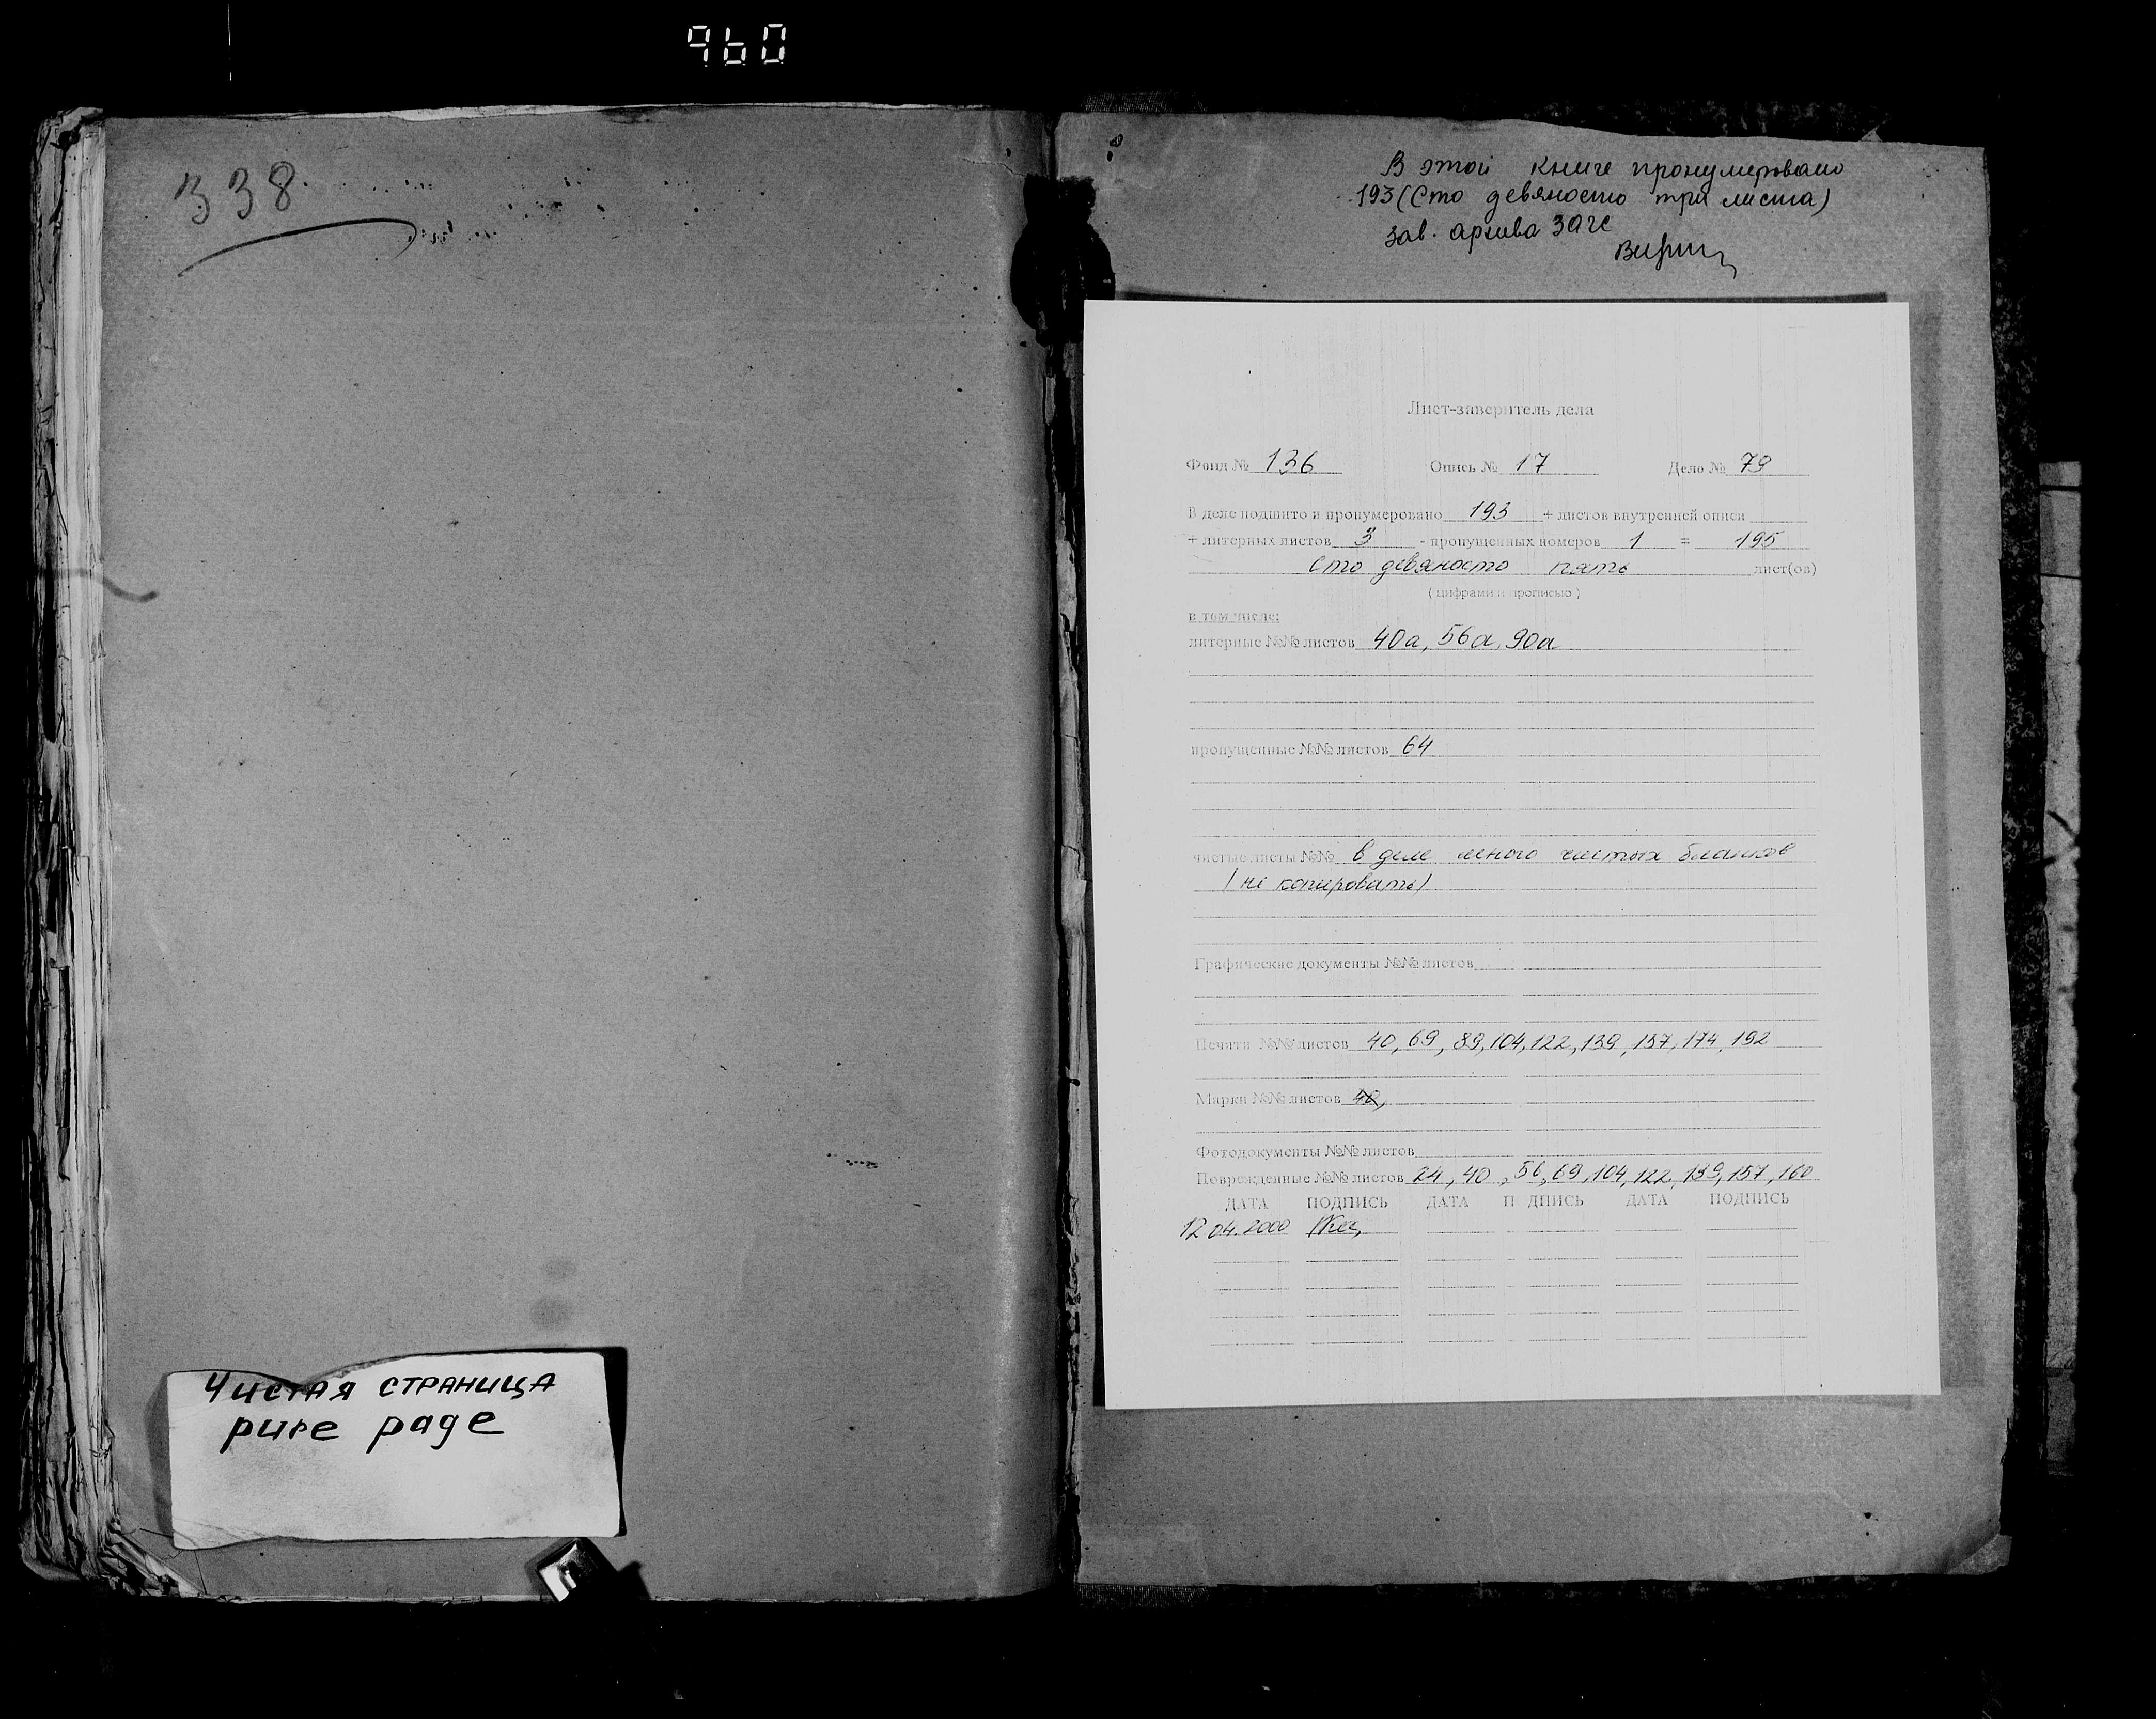 960
338
Чистая страница
pure page
В этой книге пронумеровано
193 (Сто девяносто три листа)
зав. архива ЗАГС
Лист-заверитель дела
Фонд № 136 Опись № 17 Дело № 79
В деле подшито и пронумеровано 193 + листов внутренней описи
+ литерных листов 3 - пропущенных номеров 1 = 195
Сто девяносто пять лист(ов)
( цифрами и прописью )
в том числе:
литерные №№ листов 40а, 56а, 90а
пропущенные №№ листов 64
чистые листы №№ в деле много чистых бланков
(не копировать)
Графические документы №№ листов
Печати №№ листов 40, 69, 89, 104, 122, 139, 157, 174, 192
Марки №№ листов 40,
Фотодокументы №№ листов
Поврежденные №№ листов 24, 40, 56, 69, 104, 122, 139, 157, 160
ДАТА ПОДПИСЬ ДАТА П ДПИСЬ ДАТА ПОДПИСЬ
12.04.2000